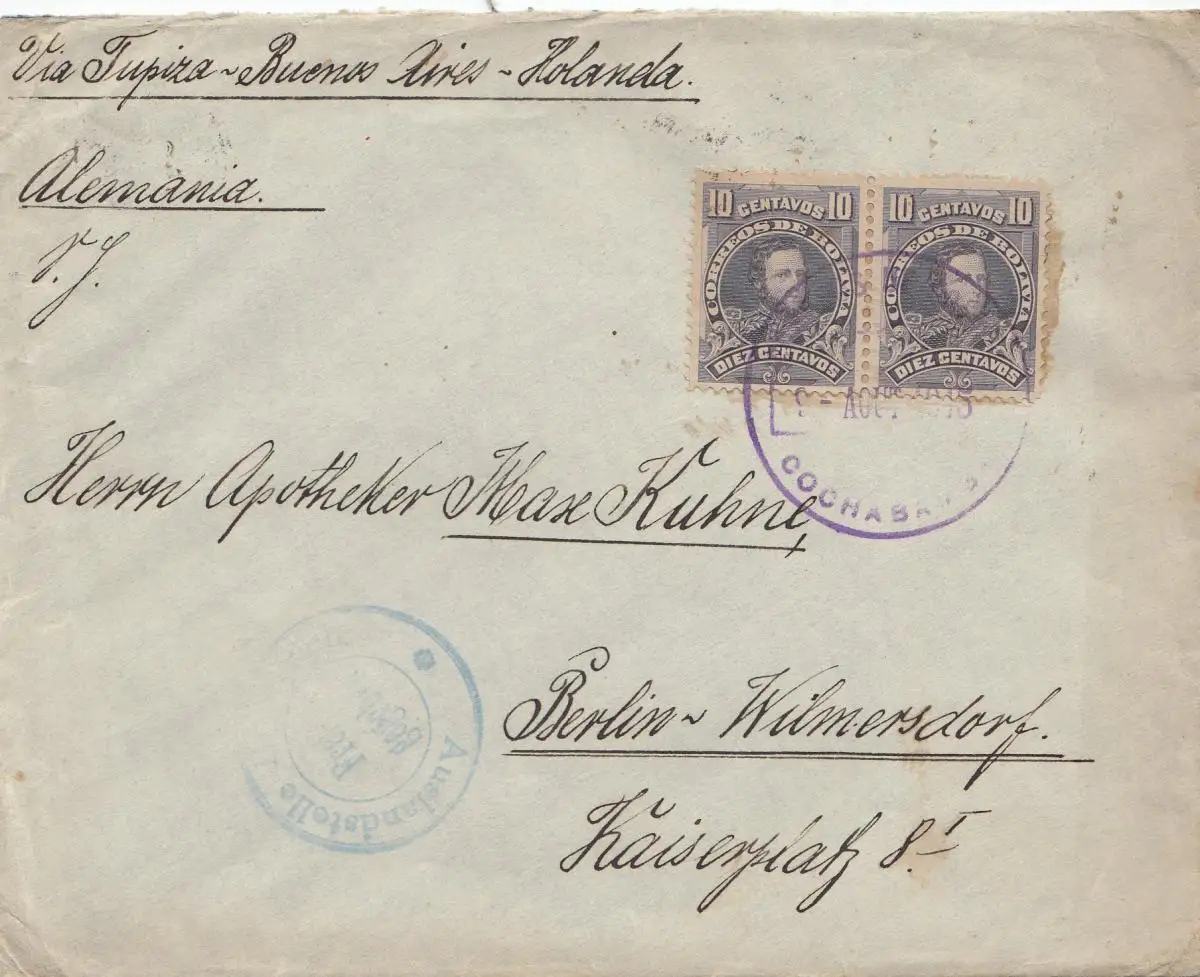 Via Tupiza ~ Buenos Aires - Holanda.
Alemania.
10 CENTAVOS 10
CORREOS DE BOLIVIA
DIEZ CENTAVOS
10 CENTAVOS 10
CORREOS DE BOLIVIA
DIEZ CENTAVOS
COCHABA
Herrn Apotheker Max Kuhne,
Berlin ~ Wilmersdorf.
Auslandstelle
Kaiserplatz 8.I